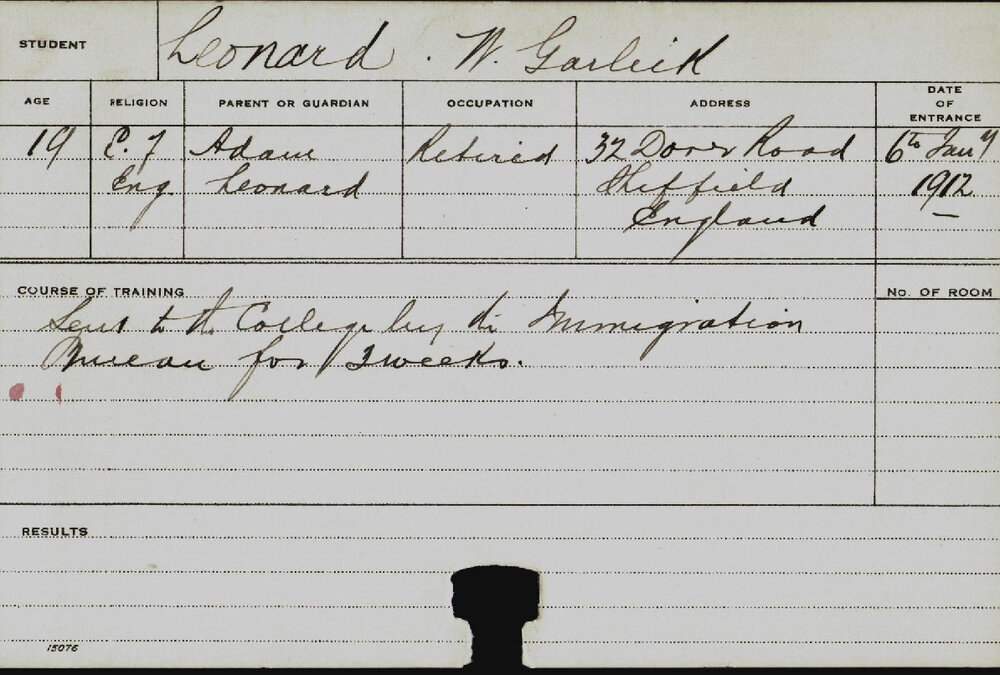 STUDENT Leonard. W. Garlick
AGE RELIGION PARENT OR GUARDIAN OCCUPATION ADDRESS DATE OF ENTRANCE
19 C. of Adam Retired 32 Dover Road 6th Jany
Eng. Leonard Sheffield 1912
England
COURSE OF TRAINING No. OF ROOM
Sent to the College by the Immigration
Bureau for 3 weeks.
RESULTS
15076